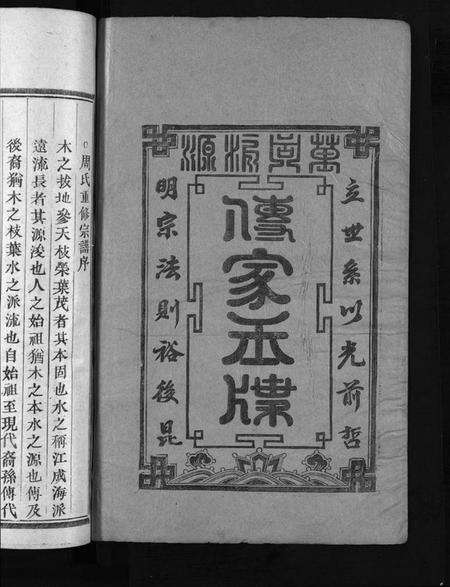 萬源
立世系以光前哲
傳家玉牒
明宗法則裕後昆
周氏重修宗譜序
木之拔地參天枝榮葉茂者其本固也水之稱江成海派
遠流長者其源浚也人之始祖猶木之本水之源也傳及
後裔猶木之枝葉水之派流也自始祖至現代裔孫傳代